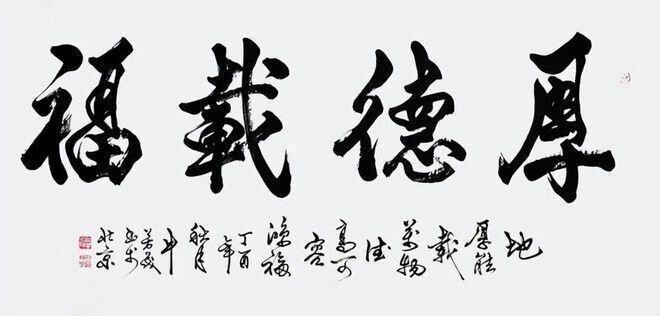 厚德載福
地
厚能
載
萬物
德
高可
容
鴻福
丁酉
年
秋月
牛
書於
北京